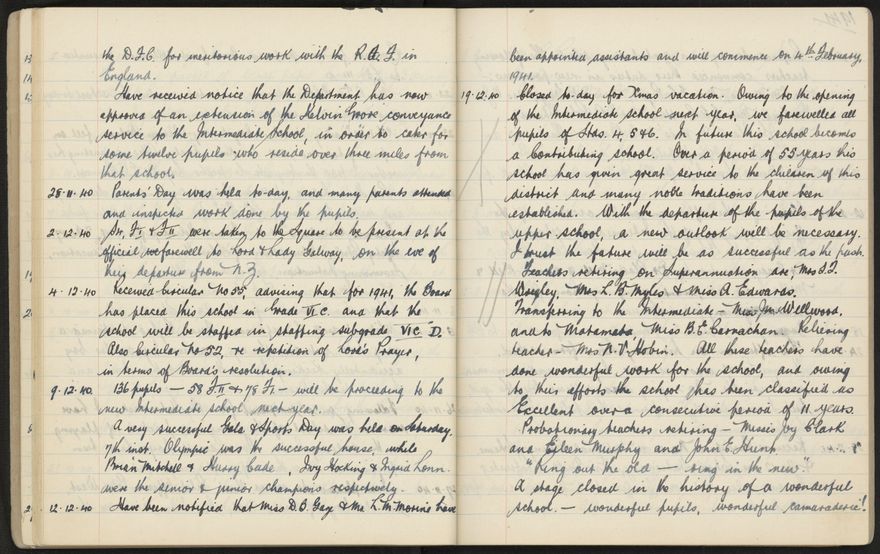 the D.F.C. for meritorious work with the R.A.F. in
England.
Have received notice that the Department has now
approved of an extension of the Kelvin Grove conveyance
service to the Intermediate School, in order to cater for
some twelve pupils who reside over three miles from
that school.
28·11·40 Parents' Day was held to-day, and many parents attended
and inspected work done by the pupils.
2·12·40 Drs, F I & F II were taken to the Square to be present at the
official farewell to Lord & Lady Galway, on the eve of
their departure from N.Z.
4·12·40 Received Circular No 53, advising that for 1941, the Board
has placed this school in Grade VI C. and that the
school will be staffed in staffing subgrade VI C D.
Also Circular No 52, re repetition of Lord's Prayer,
in terms of Board's resolution.
9·12·40. 136 pupils — 58 F.II & 78 F.I — will be proceeding to the
new Intermediate school next year.
A very successful Gala & Sports Day was held on Saturday,
7th inst. Olympic was the successful house, while
Brian Mitchell & Harry Cade, Ivy Hocking & Ingrid Lonn
were the senior & junior champions respectively.
12·12·40 Have been notified that Miss D.B. Gay & Mr L. M. have
been appointed assistants and will commence on 4th February,
1941.
19·12·40 Closed to-day for Xmas vacation. Owing to the opening
of the Intermediate school next year, we farewelled all
pupils of Stds. 4, 5 & 6. In future this school becomes
a Contributing school. Over a period of 55 years this
school has given great service to the children of this
district and many noble traditions have been
established. With the departure of the pupils of the
upper school, a new outlook will be necessary.
I trust the future will be as successful as the past.
Teachers retiring on Superannuation are; Mrs
Mrs L. B. Myles & Miss A. Edwards.
Transferring to the Intermediate — Miss Wellwood,
and to Matamata Miss B. E. Carnachan. Relieving
teacher — Mrs N. V. Hobin. All these teachers have
done wonderful work for the school, and owing
to their efforts the school has been classified as
Excellent over a consecutive period of 11 years.
Probationary teachers retiring — Misses Joy Clark
and Eileen Murphy and John E. Hunt
"Ring out the old — ring in the new".
A stage closed in the history of a wonderful
school. — wonderful pupils, wonderful camaraderie!